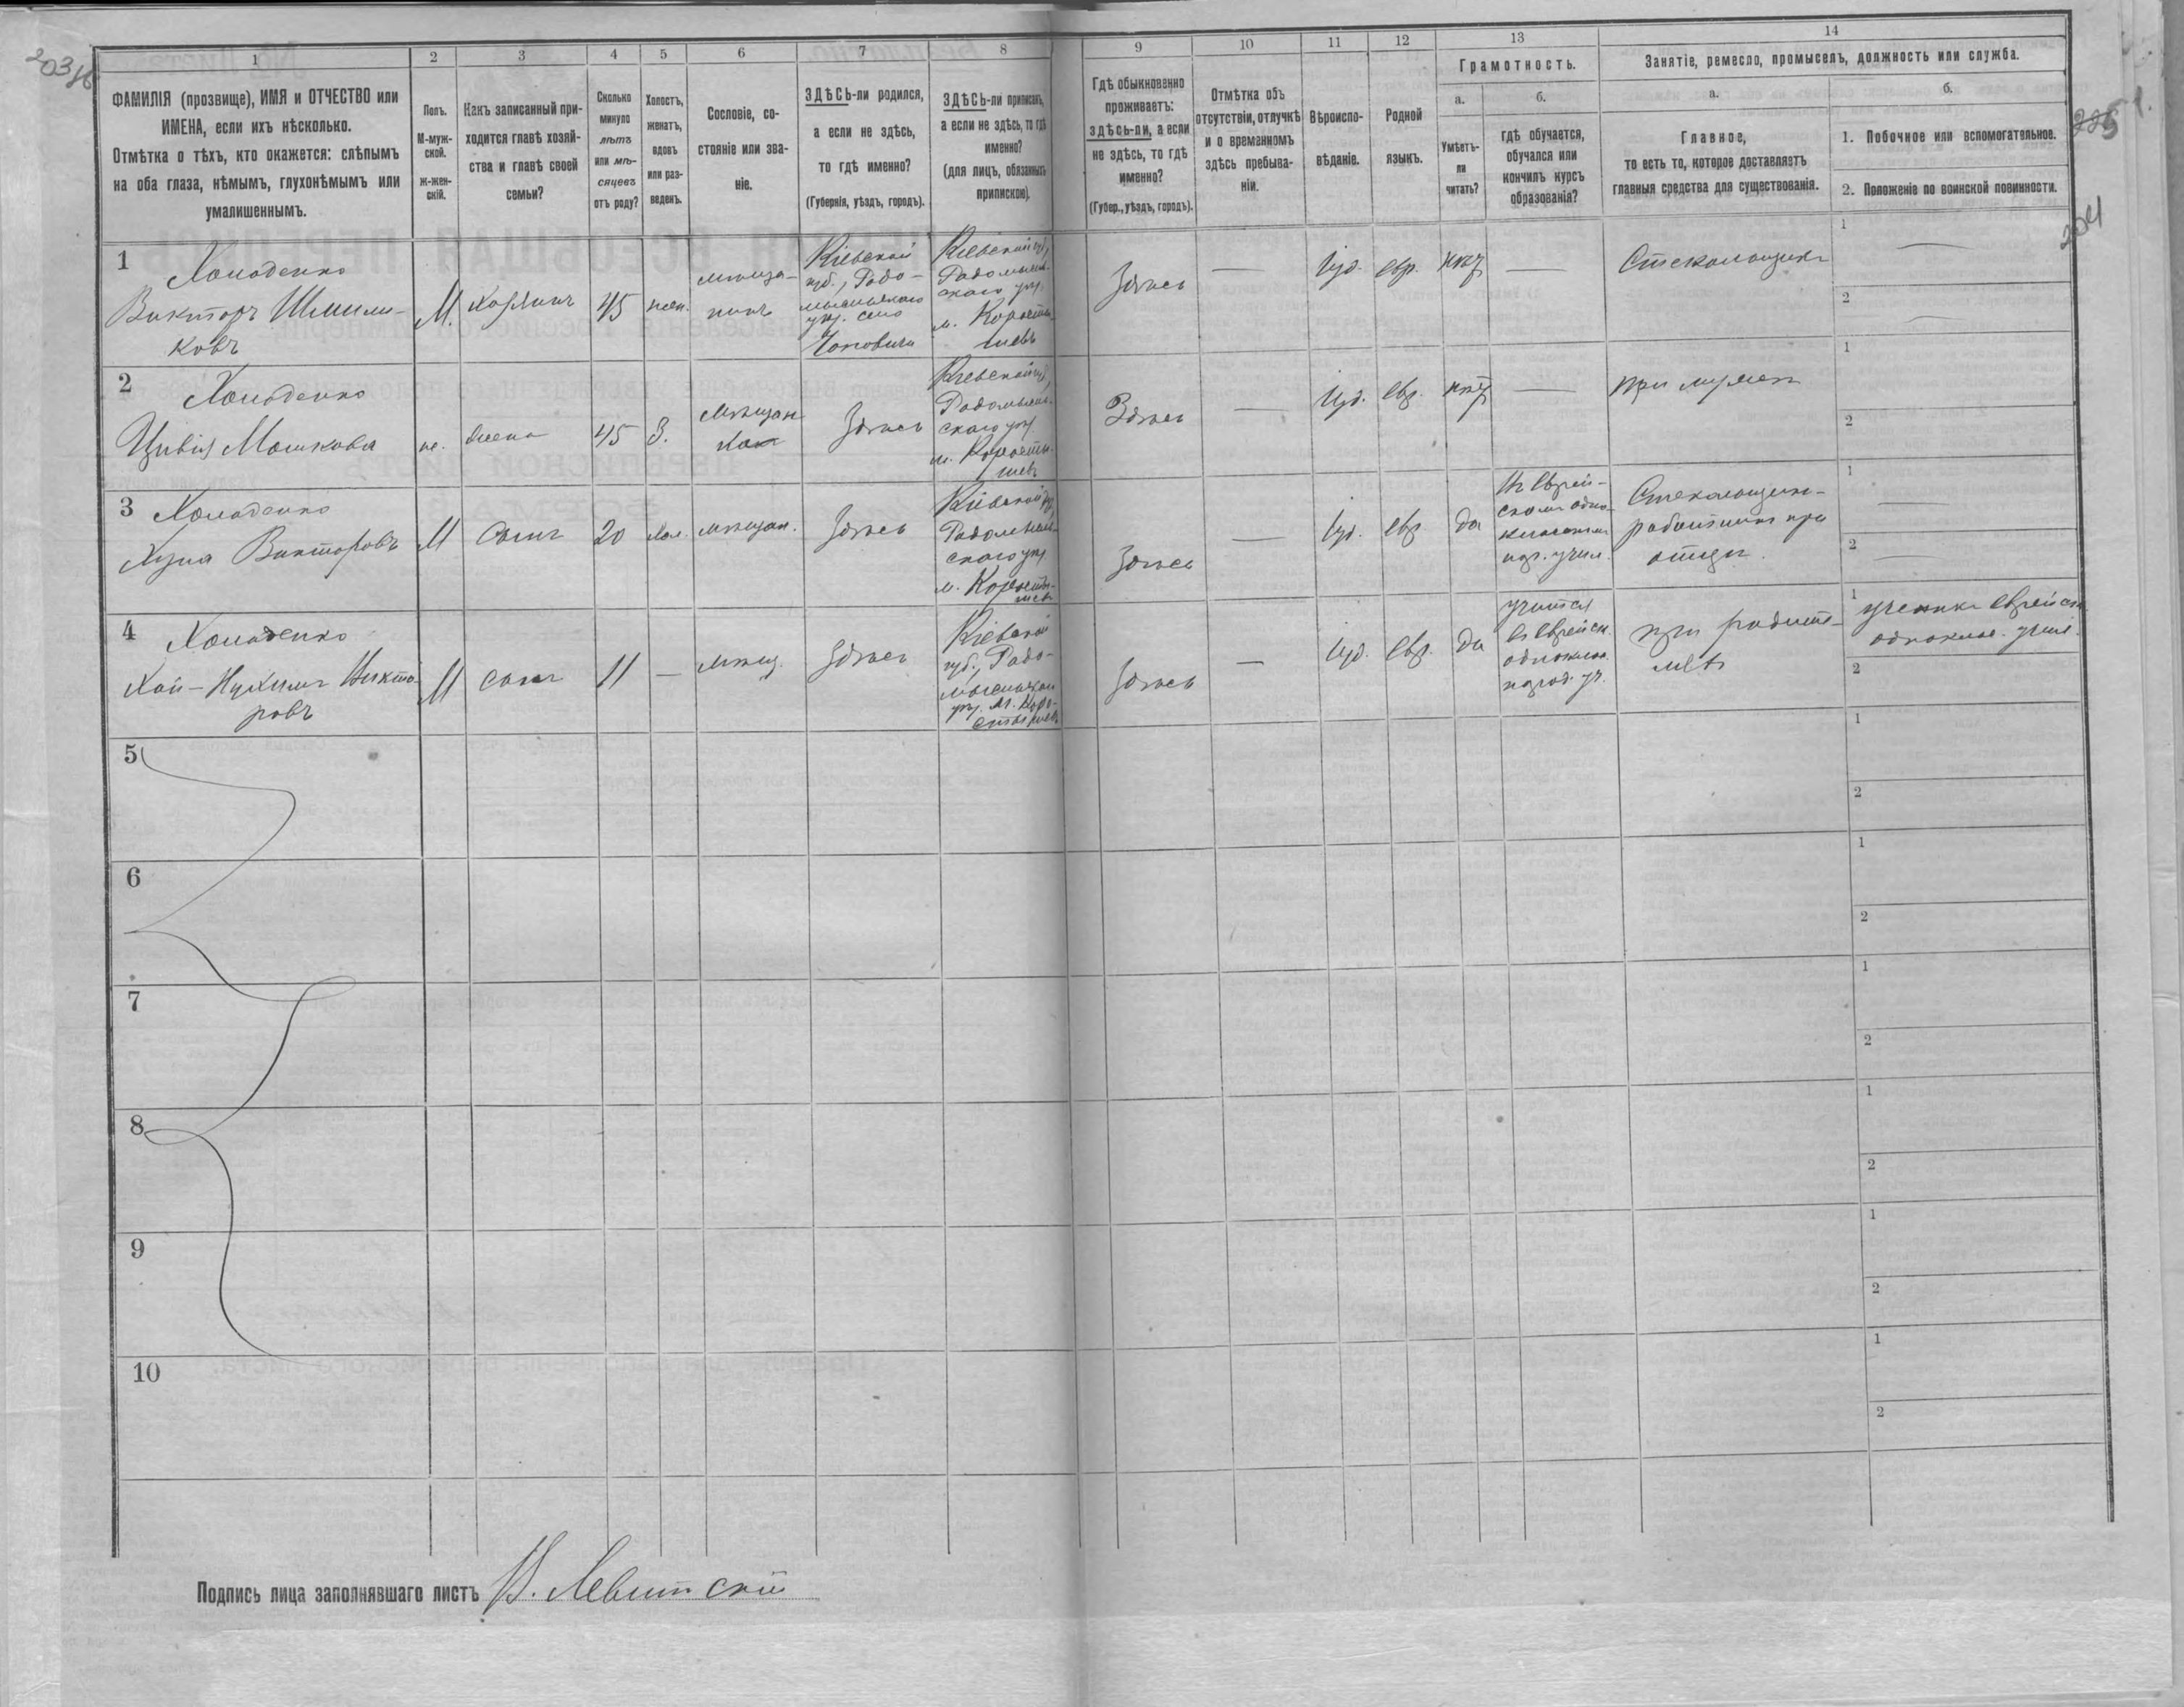 203 1/2
1
2
3
4
5
6
7
8
9
10
11
12
13
14
ФАМИЛІЯ (прозвище), ИМЯ и ОТЧЕСТВО или
ИМЕНА, если ихъ нѣсколько.
Отмѣтка о тѣхъ, кто окажется: слѣпымъ
на оба глаза, нѣмымъ, глухонѣмымъ или
умалишеннымъ.
Полъ.
М-муж-
ской.
Ж-жен-
скій.
Какъ записанный при-
ходится главѣ хозяй-
ства и главѣ своей
семьи?
Сколько
минуло
лѣтъ
или мѣ-
сяцевъ
отъ роду?
Холостъ,
женатъ,
вдовъ
или раз-
веденъ.
Сословіе, со-
стояніе или зва-
ніе.
ЗДѢСЬ-ли родился,
а если не здѣсь,
то гдѣ именно?
(Губернія, уѣздъ, городъ).
ЗДѢСЬ-ли приписанъ,
а если не здѣсь, то гдѣ
именно?
(для лицъ, обязанныхъ
припискою).
Гдѣ обыкновенно
проживаетъ:
здѣсь-ли, а если
не здѣсь, то гдѣ
именно?
(Губер., уѣздъ, городъ).
Отмѣтка объ
отсутствіи, отлучкѣ
и о временномъ
здѣсь пребыва-
ніи.
Вѣроиспо-
вѣданіе.
Родной
языкъ.
Грамотность.
а.
Умѣетъ-
ли
читать?
б.
гдѣ обучается,
обучался или
кончилъ курсъ
образованія?
Занятіе, ремесло, промыселъ, должность или служба.
а.
Главное,
то есть то, которое доставляетъ
главныя средства для существованія.
б.
1. Побочное или вспомогательное.
2. Положеніе по воинской повинности.
204
1
Холоденко
Викторъ Шмили-
ковъ
М.
хозяинъ
45
жен.
мѣща-
нинъ
Кіевской
губ., Радо-
мысльскаго
уѣз. село
Чоповичи
Кіевской губ,
Радомысль-
скаго уѣз.
м. Коросты-
шевъ
Здѣсь
—
Іуд.
евр.
нѣт
—
Стекольщикъ
1 —
2
2
Холоденко
Цивія Мошкова
ж.
жена
45
З.
Мѣщан
ка
Здѣсь
Кіевской губ,
Радомысль-
скаго уѣз.
м. Коросты-
шевъ
Здѣсь
—
Іуд.
евр.
нѣт
—
при мужѣ
1
2
3
Холоденко
Хуна Викторовъ
М
сынъ
20
хол.
мѣщан.
Здѣсь
Кіевской губ,
Радомысль-
скаго уѣз.
м. Коросты-
шевъ
Здѣсь
—
Іуд.
евр.
да
Въ Еврей-
скомъ одно-
классномъ
нар. учил.
Стекольщикъ-
работникъ при
отцѣ.
1 —
2 —
4
Холоденко
Викто-
ровъ
М
сынъ
11
—
мѣщ.
Здѣсь
Кіевской
губ., Радо-
мысльскаго
уѣз. м. Коро-
стышевъ
Здѣсь
—
Іуд.
Евр.
да
учится
въ Еврейск.
одноклас.
народ. уч.
при родите-
ляхъ
1 ученикъ Еврейск.
одноклас. учил.
2
5
1
2
6
1
2
7
1
2
8
1
2
9
1
2
10
1
2
Подпись лица заполнявшаго листъ В. Левитскій